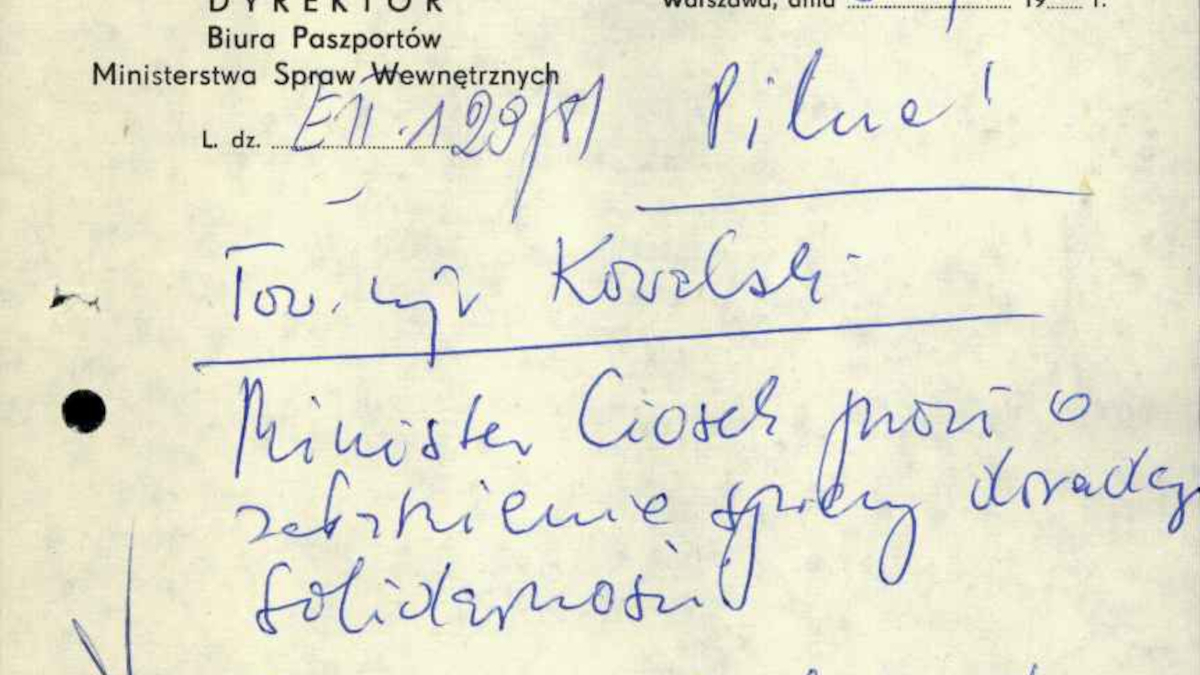 DYREKTOR
Biura Paszportów
Ministerstwa Spraw Wewnętrznych
Warszawa, dnia 19 r.
L. dz. EII-129/81
Pilne!
Tow. Kowalski
Minister Ciosek prosi o
załatwienie sprawy doradcy
Solidarności